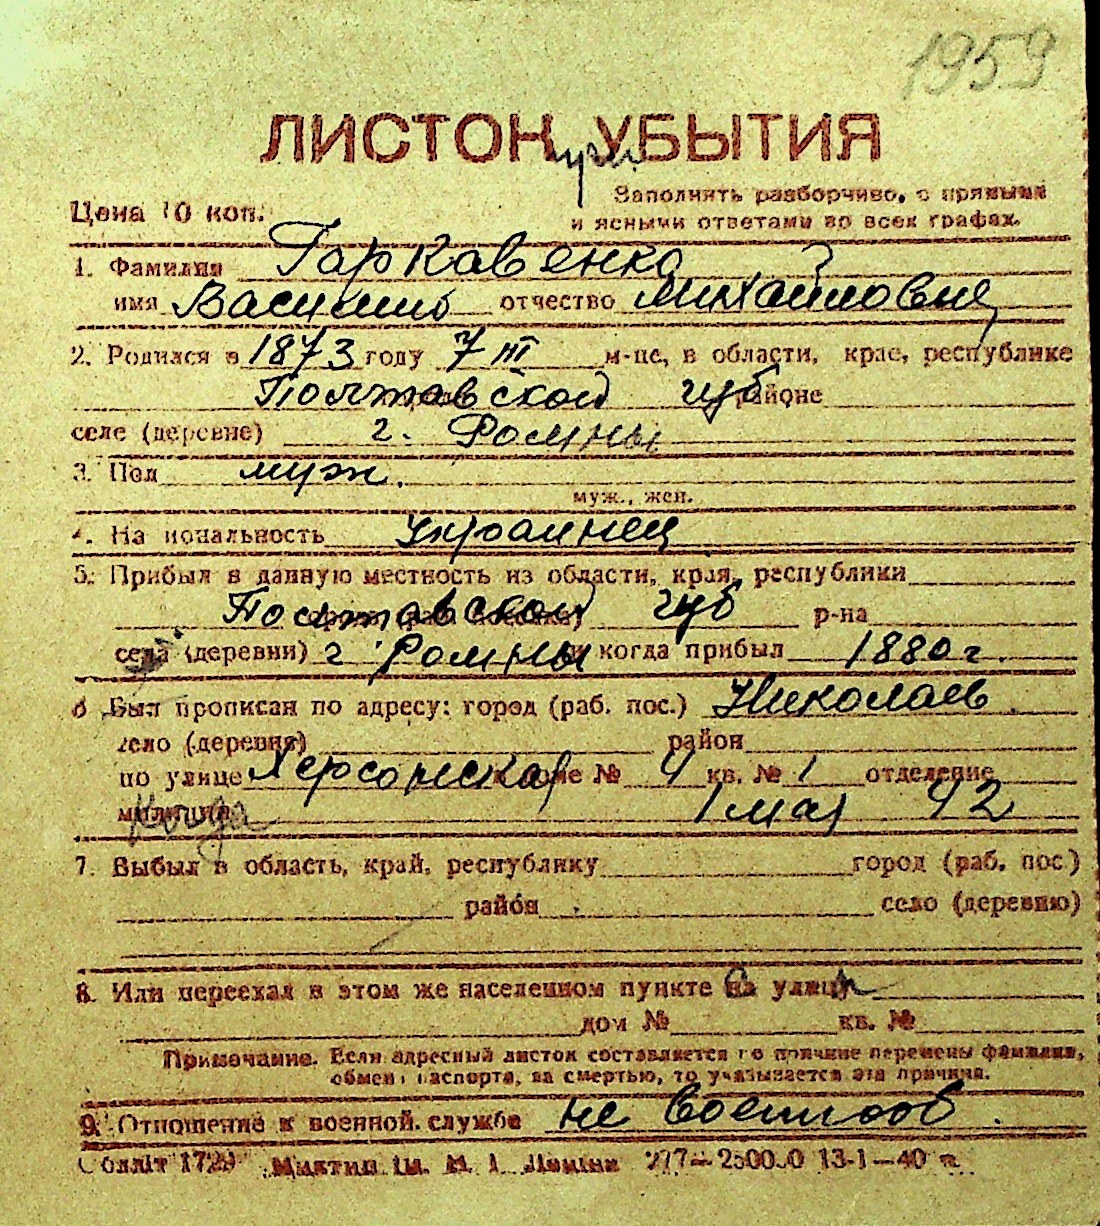 1959
ЛИСТОК при УБЫТИЯ
Цена 10 коп. Заполнять разборчиво, с прямыми
и ясными ответами во всех графах.
1. Фамилия Гаркавенко
имя Василий отчество Михайлович
2. Родился в 1873 году 7 III м-це, в области, крае, республике
Полтавской губ районе
селе (деревне) г. Ромны
3. Пол муж.
муж., жен.
4. Национальность Украинец
5. Прибыл в данную местность из области, края, республики
Полтавской губ р-на
села (деревни) г Ромны и когда прибыл 1880 г.
6 Был прописан по адресу: город (раб. пос.) Николаев
село (деревня) район
по улице Херсонская доме № 4 кв. № 1 отделение
милиции Когда 1 мая 42
7. Выбыл в область, край, республику город (раб. пос.)
район село (деревню)
8. Или переехал в этом же населенном пункте на улицу
дом № кв. №
Примечание. Если адресный листок составляется по причине перемены фамилии,
обмена паспорта, за смертью, то указывается эта причина.
9. Отношение к военной службе не военнооб.
Обллiт 1729 Миктип iм. М. I. Ленiна 277—25000 13-1—40